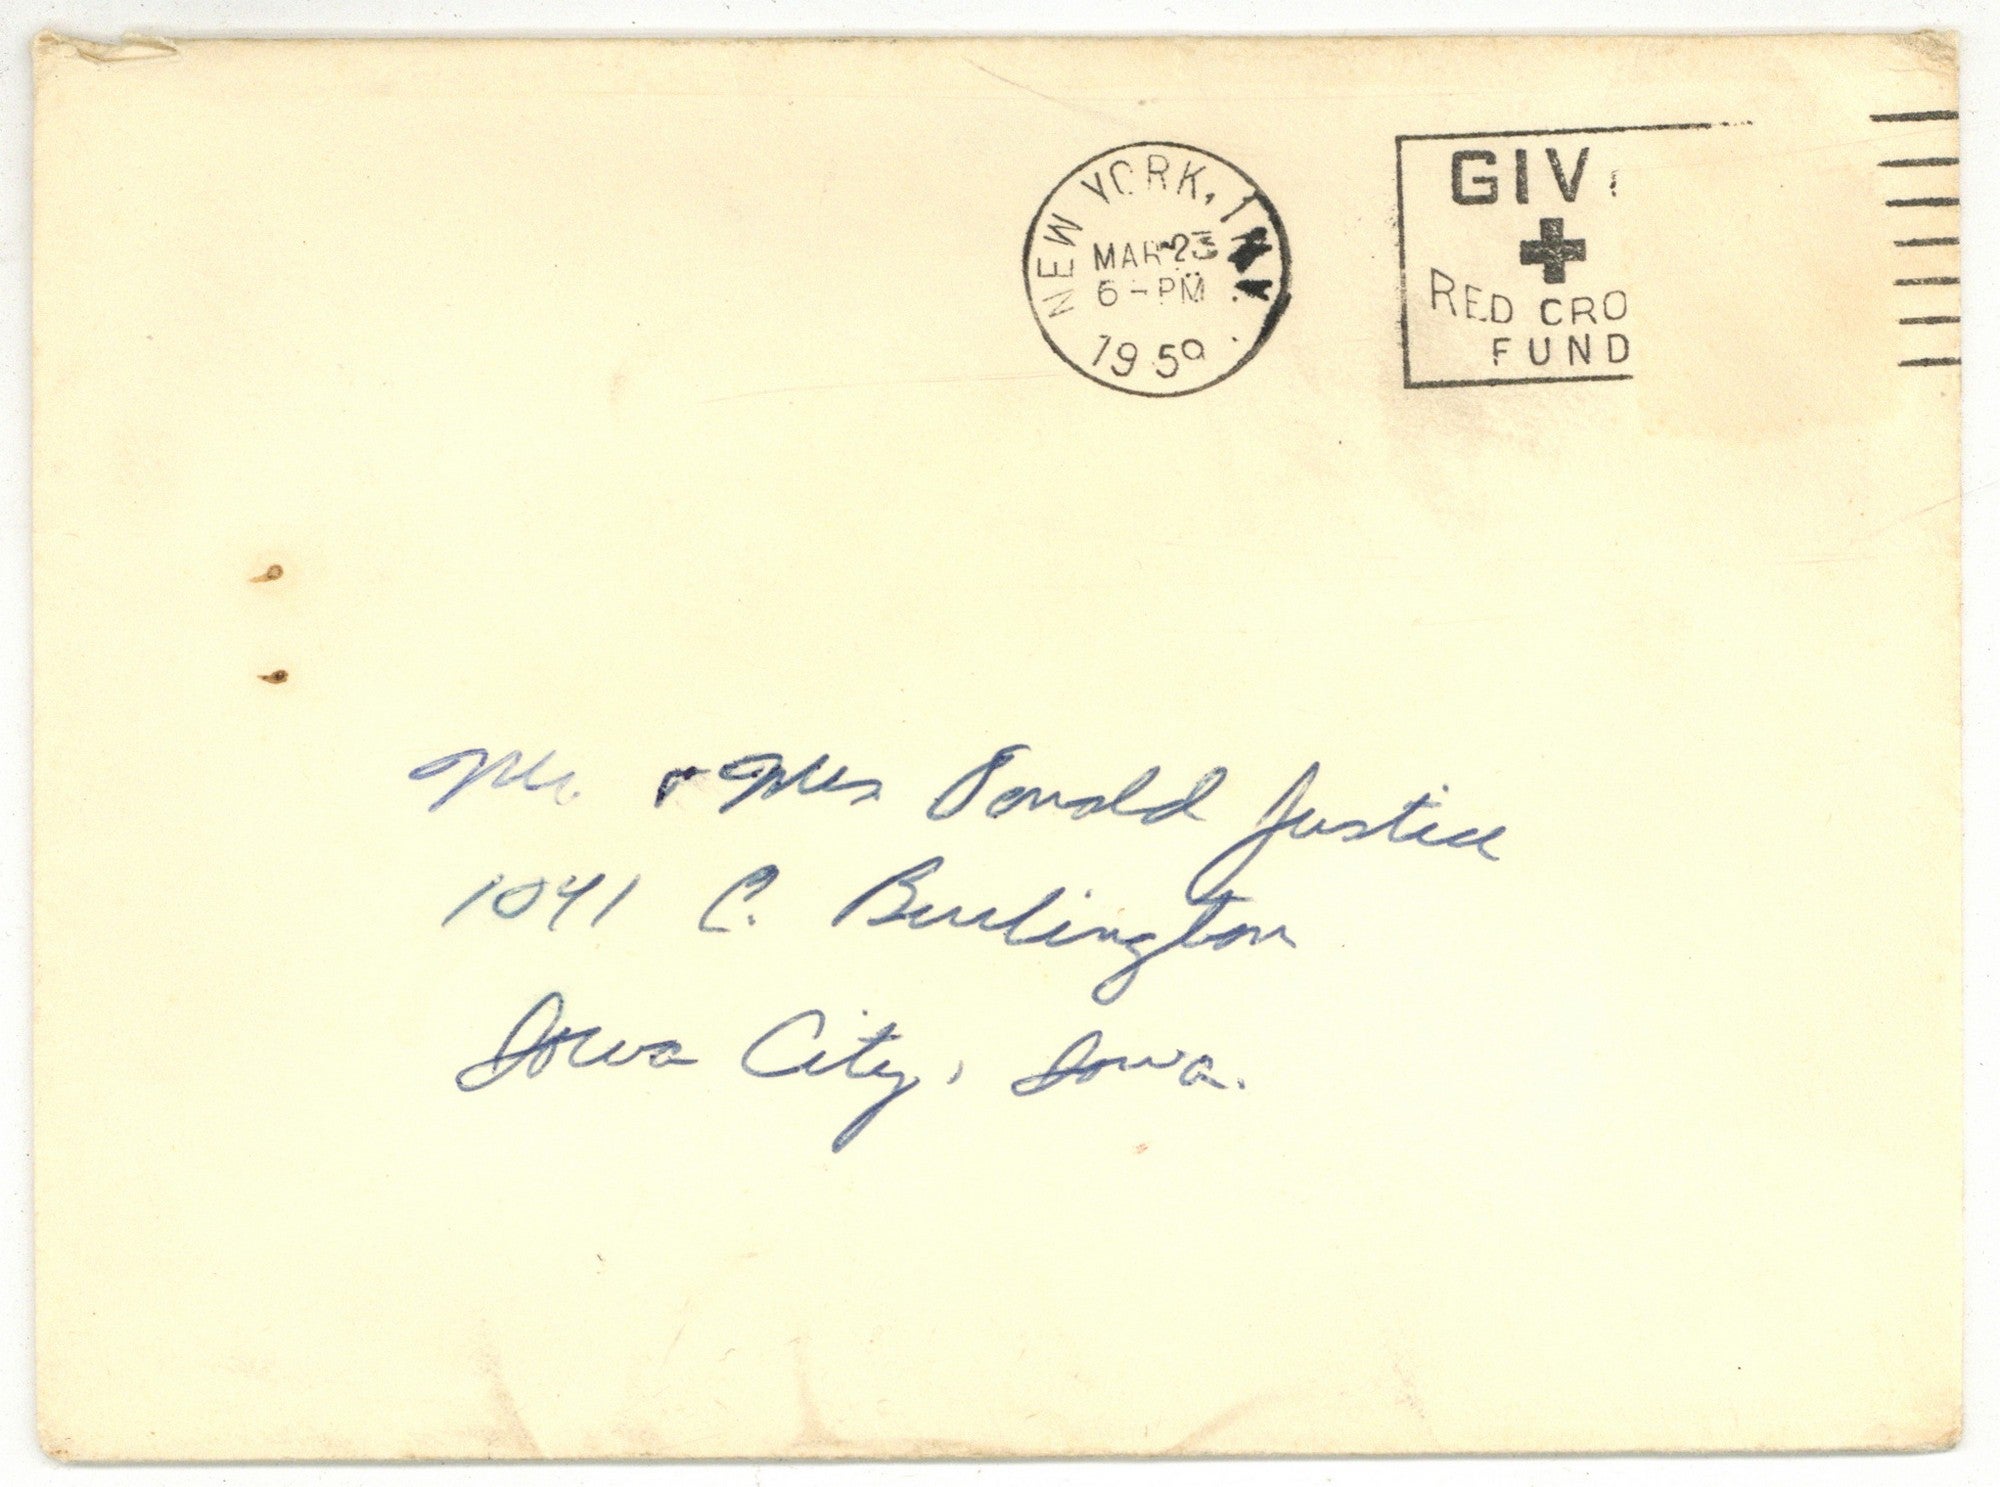 NEW YORK, 1 N.Y.
MAR 23
6 - PM
1959
GIV
RED CRO
FUND
Mr. & Mrs Donald Justice
1041 E. Burlington
Iowa City, Iowa.